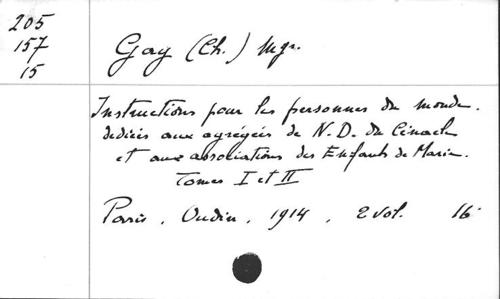 205
157
15
Gay (Ch.) Mgr.
Instructions pour les personnes du monde.
dédiées aux agrégées de N. D. du Cénacle
et aux associations des Enfants de Marie.
Tomes I et II
Paris, Oudin, 1914, 2 vol. 16